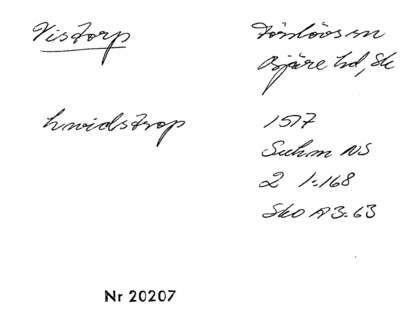 Vistorp
Förslövs sn
Bjäre hd, Sk
hwidstrop
1517
Suhm NS
2 1:168
Sko A3:63
Nr 20207